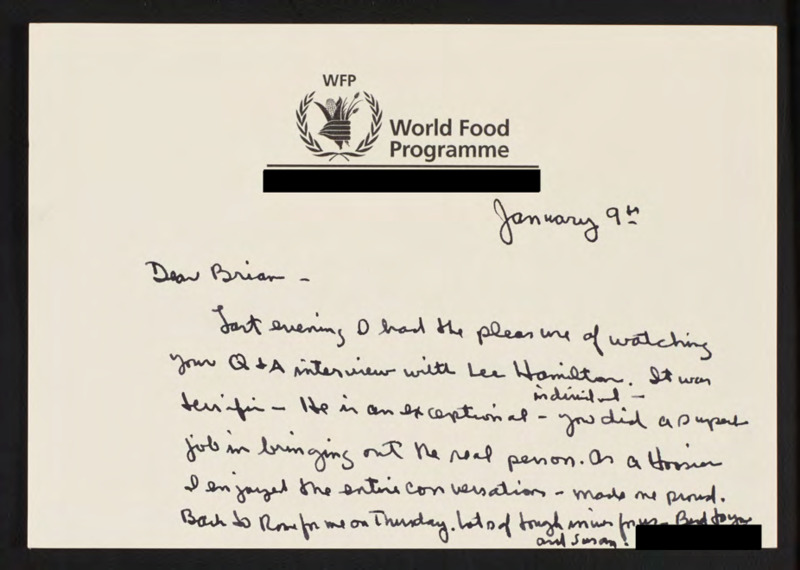 WFP
World Food
Programme
January 9th
Dear Brian -
Last evening I had the pleasure of watching
your Q&A interview with Lee Hamilton. It was
individual -
terrific - He is an exceptional - you did a superb
job in bringing out the real person. As a Hoosier
I enjoyed the entire conversation - made me proud.
Back to Rome for me on Thursday. Lots of tough issues for us - Best to you
and Susan.